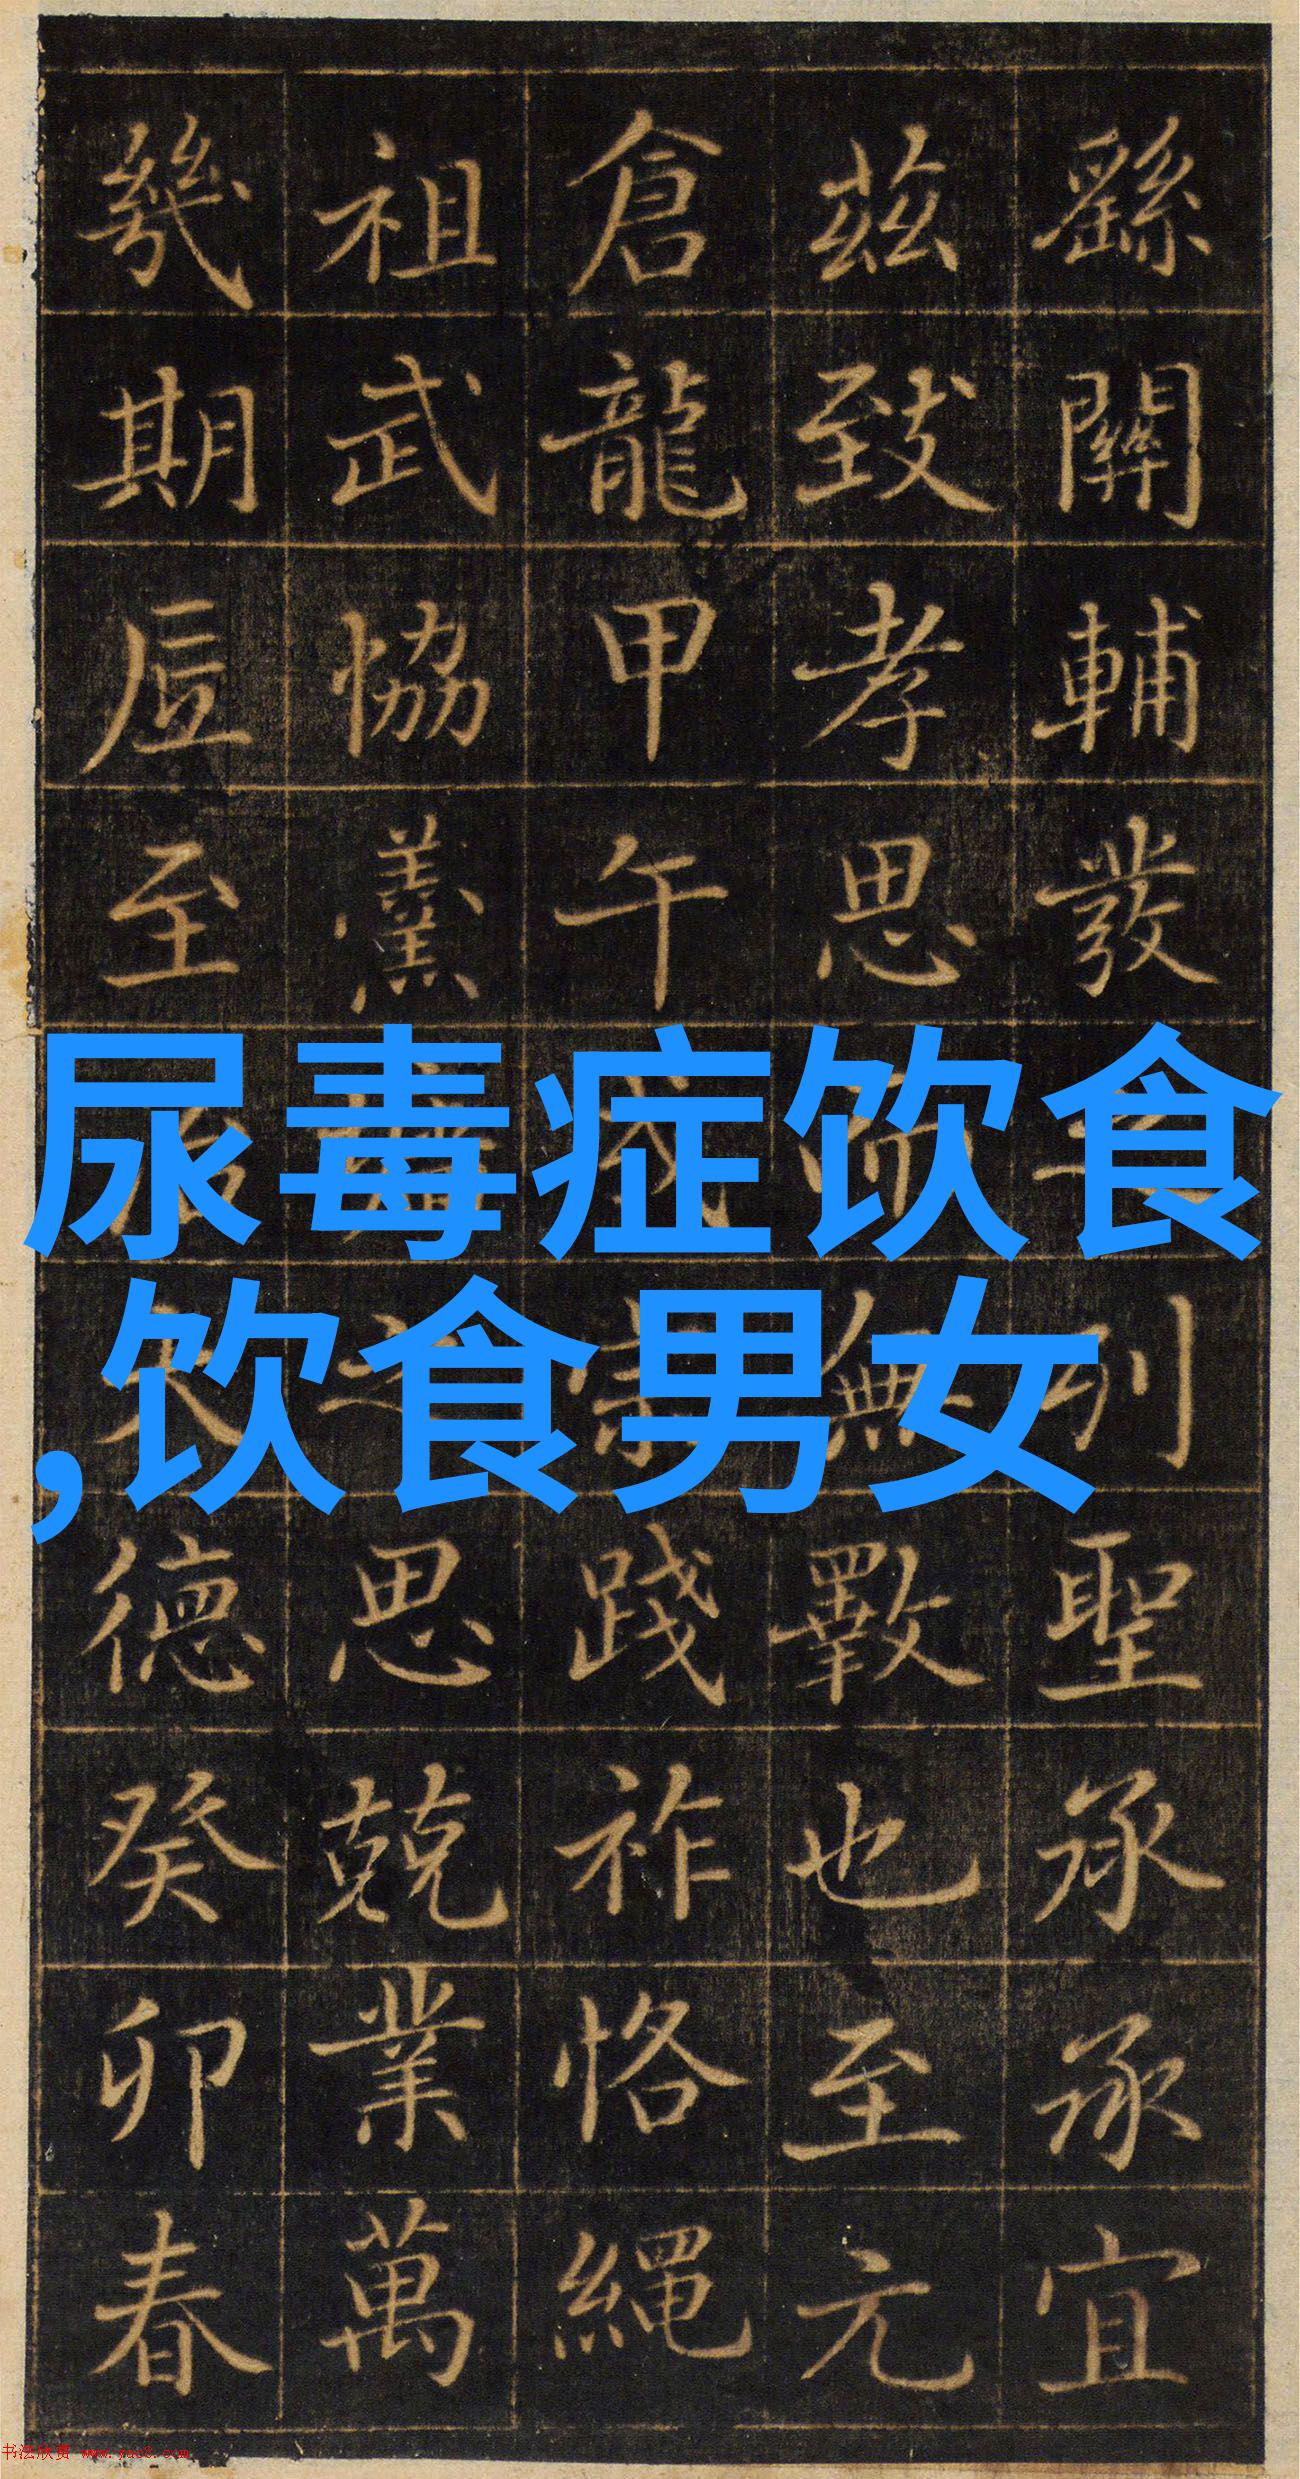 尿毒症饮食
,饮食男女
繇關輔發列聖承承宜
茲致孝思無斁也至元
倉龍甲午成宗踐祚恪繩
祖武協羹之思兢業萬
幾期至大德癸卯春
书法欣赏 www.yac8.com